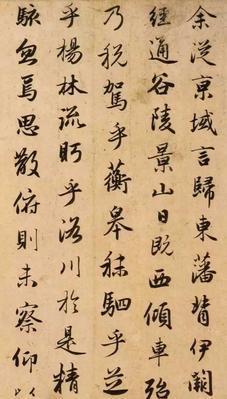 余從京域言歸東藩背伊闕
經通谷陵景山日既西傾車殆
乃稅駕乎蘅皋秣駟乎芝
乎楊林疏眄乎洛川於是精
駭忽焉思散俯則未察仰以